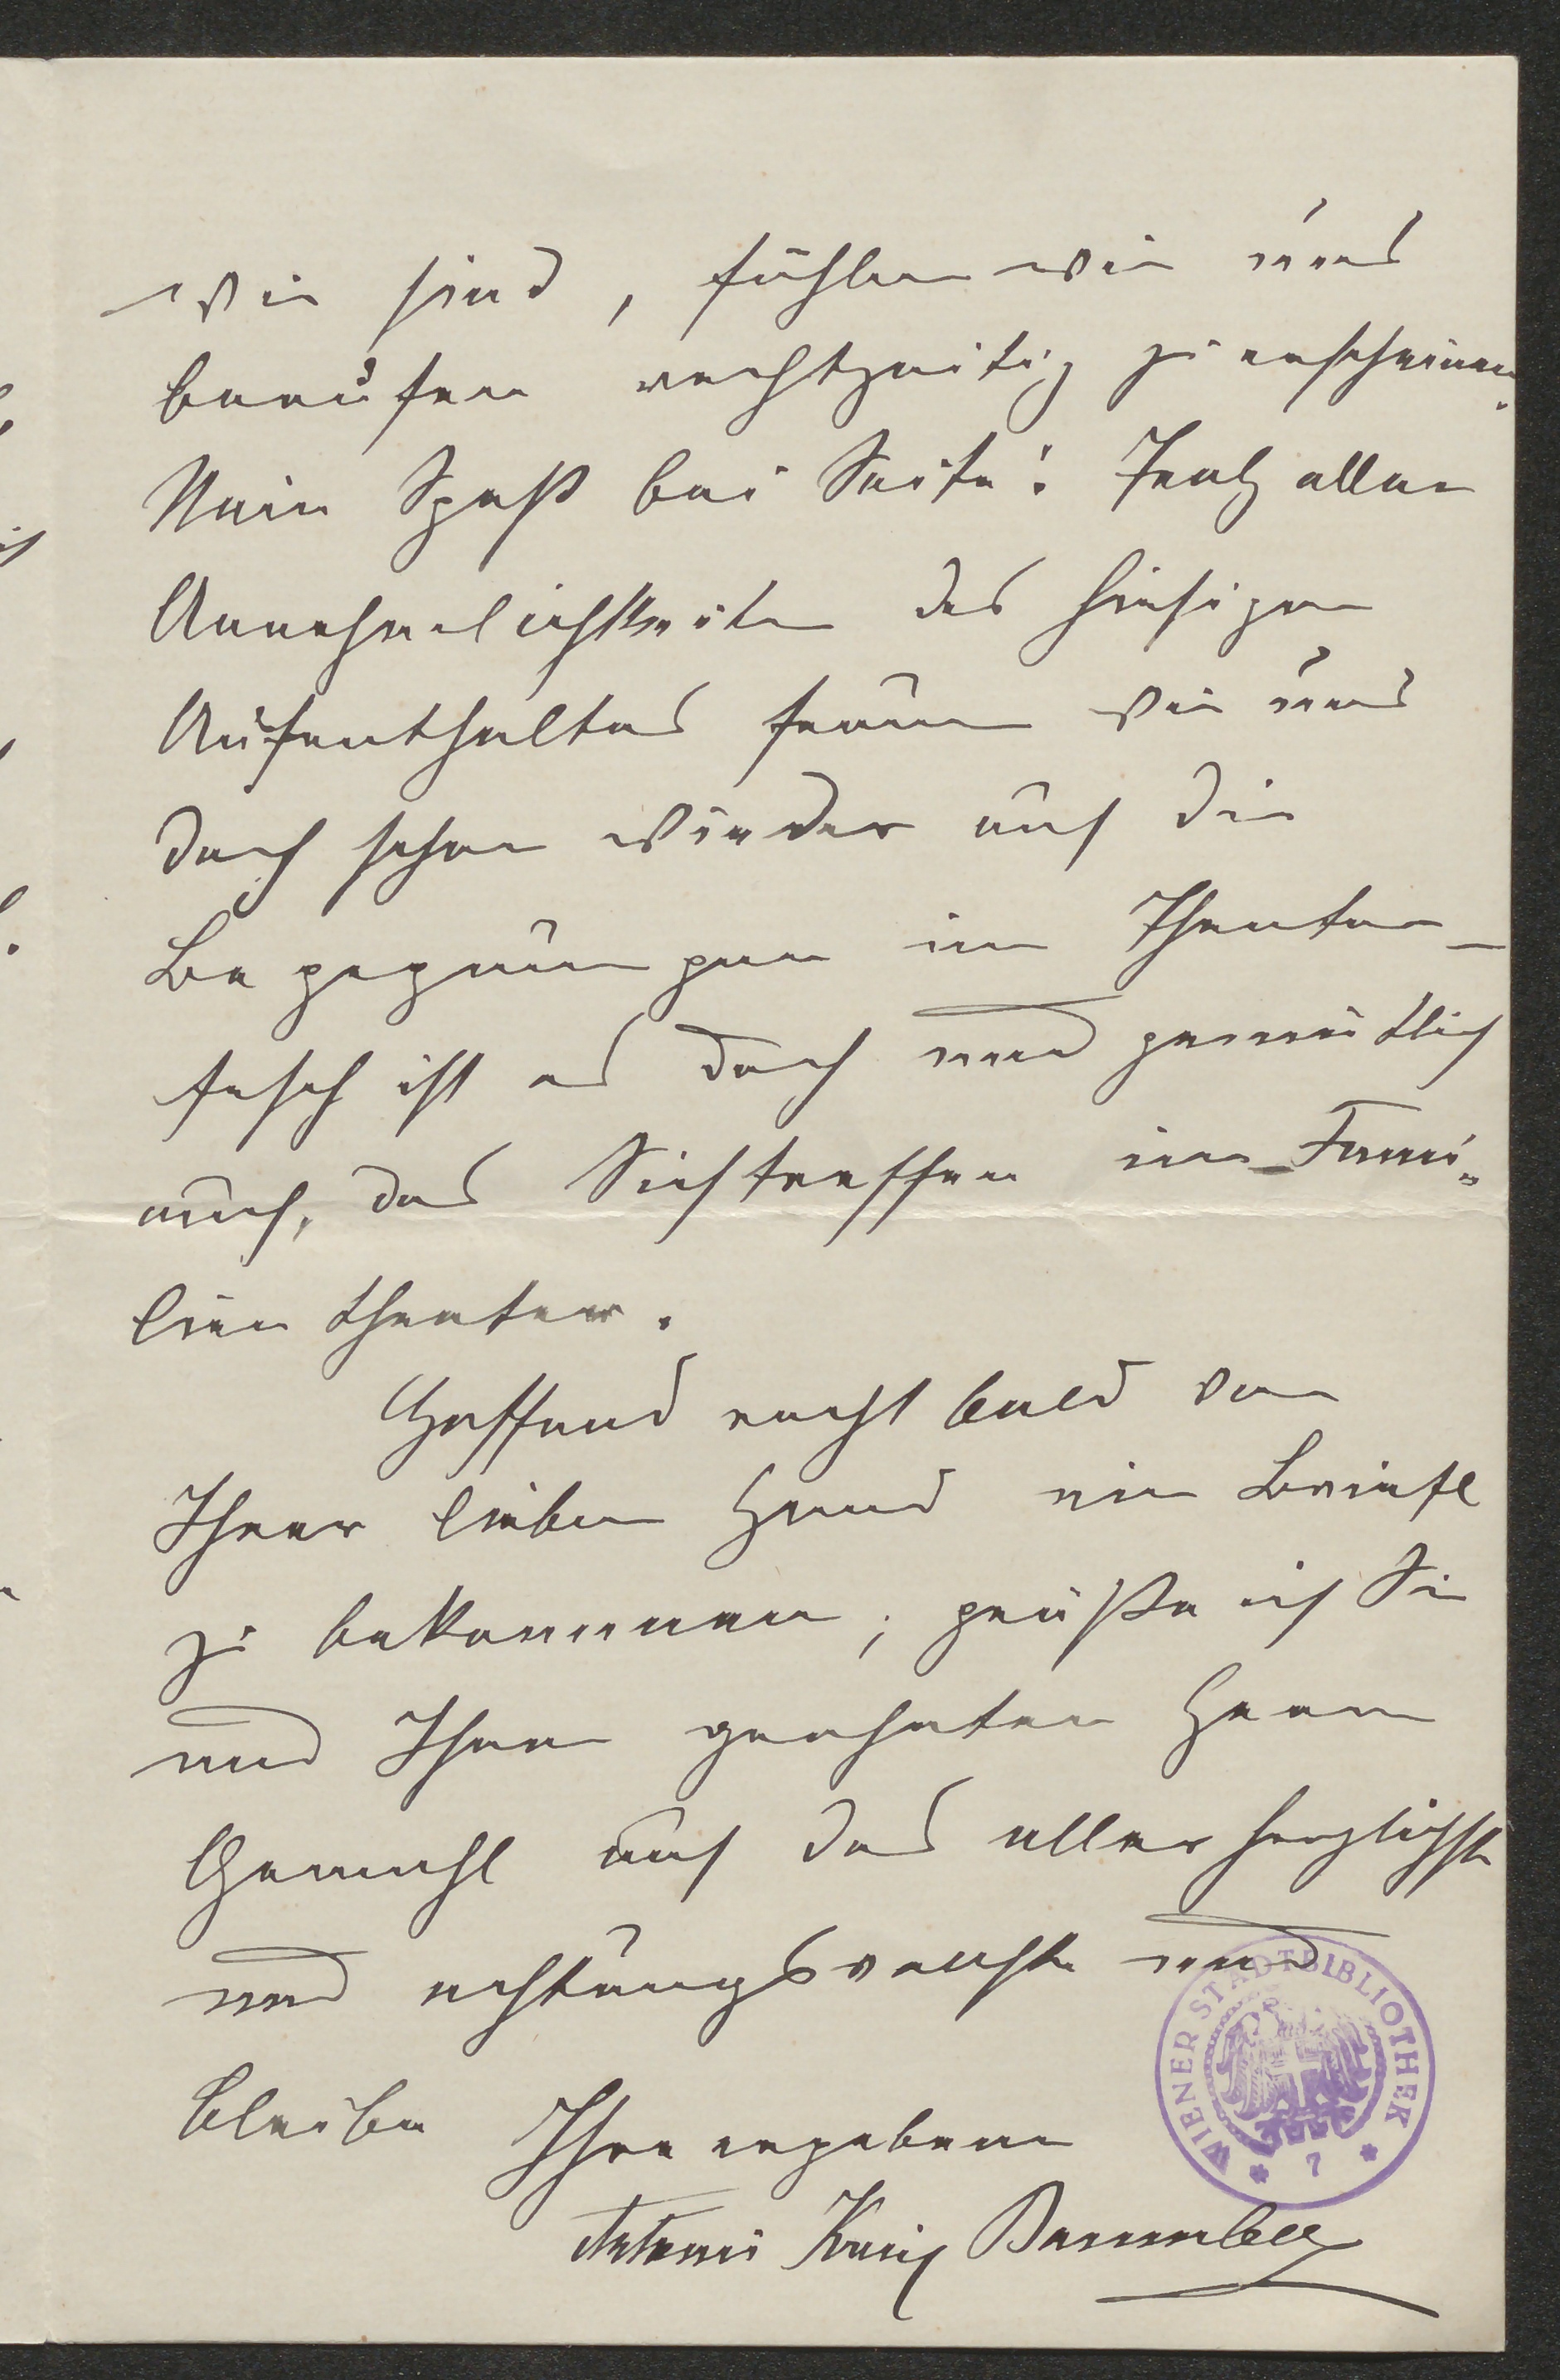 wir sind, fühlen wir uns
berufen rechtzeitig zu erscheinen.
Nein Spaß bei Seite: Trotz aller
Annehmlichkeiten des hiesigen
Aufenthaltes freuen wir uns
doch schon wieder auf die
Begegnungen im Theater –
fesch ist es doch und gemütlich
auch, das Sichtreffen im Fami-
lientheater.
Hoffend recht bald von
Ihrer lieben Hand ein Briefl
zu bekommen, grüße ich Sie
und Ihren geehrten Herrn
Gemahl auf das allerherzlichste
und achtungsvollste und
bleibe Ihre ergebene
WIENER STADTBIBLIOTHEK
* 7 *